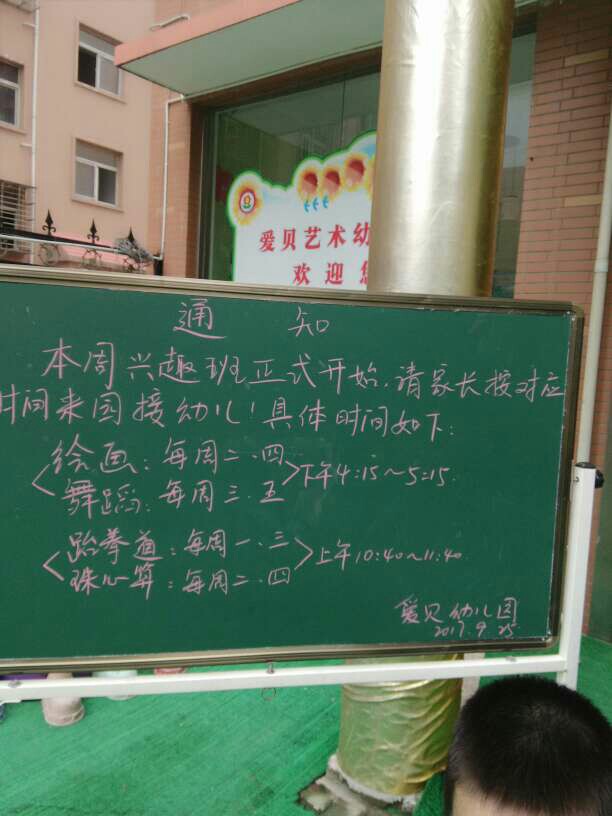 爱贝艺术幼
欢迎
通知
本周兴趣班正式开始,请家长按对应
时间来园接幼儿!具体时间如下:
绘画:每周二.四
舞蹈:每周三.五
下午4:15~5:15
跆拳道:每周一.三
珠心算:每周二.四
上午10:40~11:40
爱贝幼儿园
2017.9.25